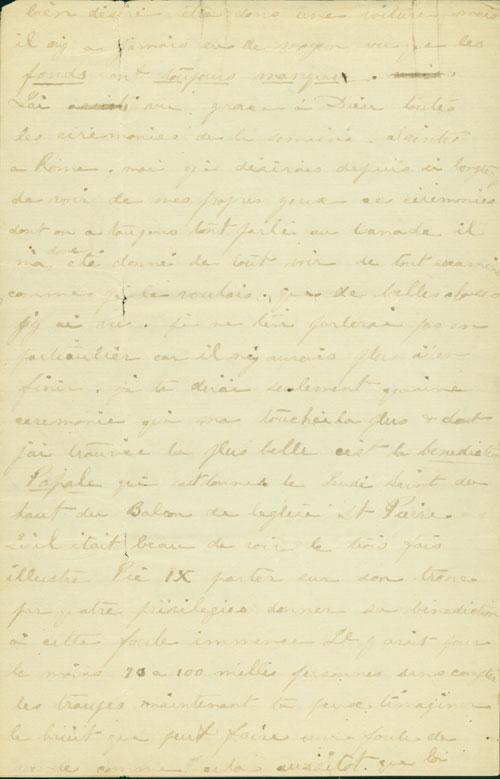 bien désiré être dans une voiture mais
il n'y a jamais eu de moyen vu que les
fonds ont toujours manqué. mais
J'ai vu, grace à Dieu toutes
les cérémonies de la semaine Sainte
a Rome. moi qui désirais depuis si longtemps
de voir de mes propres yeux ces cérémonies
dont on a toujours tout parlé au Canada il
m'a donc été donné de tout voir de tout examiner
comme je le voulais. que de belles choses
j'y ai vu. je ne t'en parlerai pas en
particulier car il n'y aurais plus a en
finir. je te dirai seulement qu'une
ceremonie qui ma touchée la plus & dont
j'ai trouvée la plus belle c'est la benediction
Papale qui est donnée le Jeudi Saint du
haut du Balcon de l'eglise St Pierre.
Qu'il était beau de voir le trois fois
illustre Pie IX porter sur son trone
par quatre privilégiés donner sa bénédiction
à cette foule immense Il y avait pour
le moins 90 a 100 milles personnes sans compter
les troupes maintenant tu peux t'imaginer
le bruit que peut faire une foule de
comme cela aussitot que